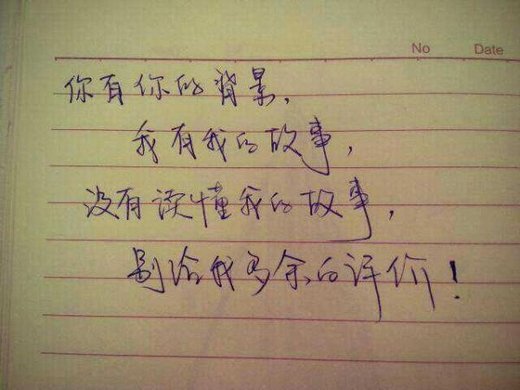 No Date
你有你的背景,
我有我的故事,
没有读懂我的故事,
别给我多余的评价!